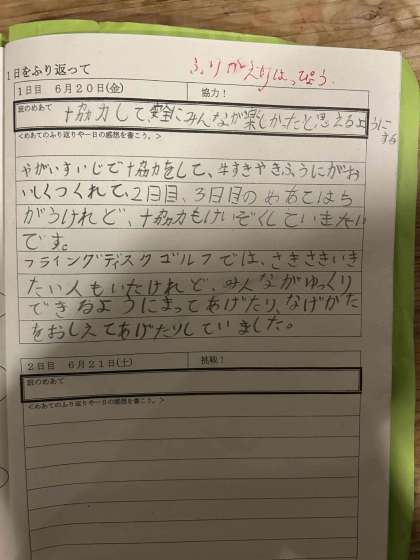 ふりかえりはっぴょう
1日をふり返って
1日目 6月20日(金) 協力!
班のめあて 協力して、安全にみんなが楽しかったと思えるようにする
<めあてのふり返りや一日の感想を書こう。>
やがいすいじで協力をして、牛すきやきふうにがお
いしくつくれて、2日目、3日目のめあてはち
がうけれど、協力もけいぞくしていきたい
です。
フライングディスクゴルフでは、さきさきいき
たい人もいたけれど、みんながゆっくり
できるようにまってあげたり、なげかた
をおしえてあげたりしていました。
2日目 6月21日(土) 挑戦!
班のめあて
<めあてのふり返りや一日の感想を書こう。>